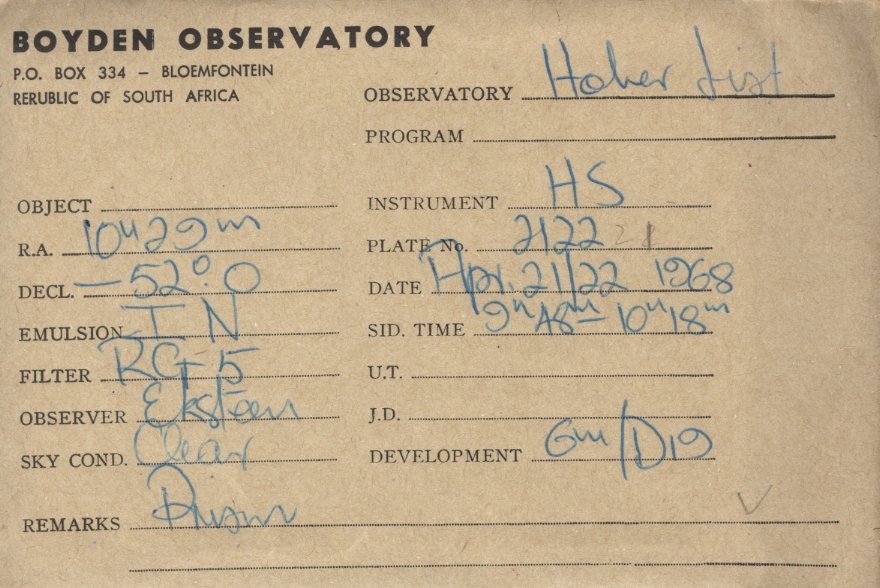 BOYDEN OBSERVATORY
P.O. BOX 334 – BLOEMFONTEIN
RERUBLIC OF SOUTH AFRICA
OBSERVATORY Hoher List
PROGRAM
OBJECT
R.A. 10h 29m
DECL. –52°.0
EMULSION I N
FILTER RG 5
OBSERVER Eksteen
SKY COND. Clear
REMARKS Prism
INSTRUMENT HS
PLATE No. 2122 21
DATE Apr. 21/22 1968
SID. TIME 9h 48m – 10h 18m
U.T.
J.D.
DEVELOPMENT 6m/D19